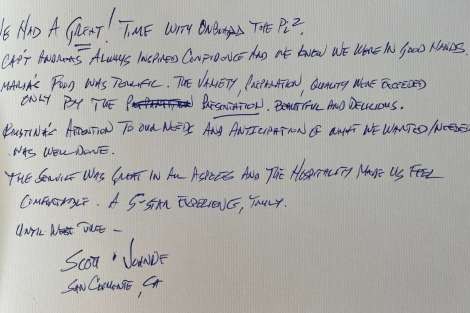 WE HAD A GREAT! TIME WITH ONBOARD THE PL2.
CAPT ANDREAS ALWAYS INSPIRED CONFIDENCE AND WE KNEW WE WERE IN GOOD HANDS.
MARIA'S FOOD WAS TERRIFIC. THE VARIETY, PREPARATION, QUALITY WERE EXCEEDED
ONLY BY THE PRESENTATION. BEAUTIFUL AND DELICIOUS.
ATTENTION TO OUR NEEDS AND ANTICIPATION OF WHAT WE WANTED/NEEDED
WAS WELL DONE.
THE SERVICE WAS GREAT IN ALL ASPECTS AND THE HOSPITALITY MADE US FEEL
COMFORTABLE. A 5-STAR EXPERIENCE, TRULY.
UNTIL NEXT TIME -
SCOTT
SAN CLEMENTE, CA